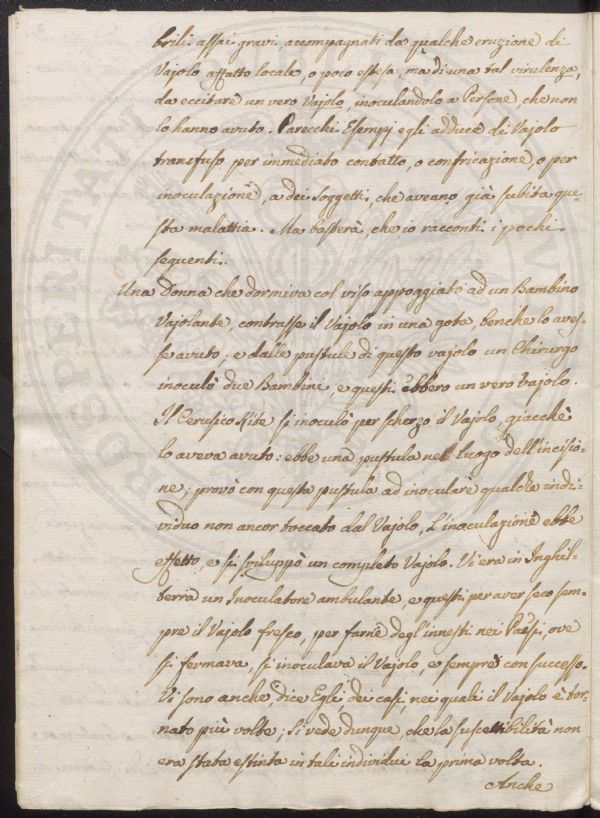 brili assai gravi, accompagnati da qualche eruzione di
Vajolo affatto locale, o poco estesa, ma di una tal virulenza,
da eccitare un vero Vajolo, inoculandolo a Persone, che non
lo hanno avuto. Parecchi Esempj egli adduce di Vajolo
transfuso per immediato contatto, o confricazione, o per
inoculazione, a dei Soggetti, che aveano già subita que=
sta malattia. Ma basterà, che io racconti i pochi
seguenti.
Una Donna che dormiva col viso appoggiato ad un Bambino
Vajolante, contrasse il Vajolo in una gota, benche lo aves=
se avuto, e dalle pustule di questo vajolo un Chirurgo
inoculò due Bambini, e questi ebbero un vero Vajolo.
Il Cerusico Kite si inoculò per scherzo il Vajolo, giacchè
lo aveva avuto: ebbe una pustula nel luogo dell'incisio=
ne; provò con questa pustula ad inoculare qualche indi=
viduo non ancor toccato dal Vajolo, L'inoculazione ebbe
effetto, e si sviluppò un completo Vajolo. Vi era in Inghil=
terra un Inoculatore ambulante, e questi per aver seco sem=
pre il Vajolo fresco, per farne degl'innesti nei Paesi, ove
si fermava, si inoculava il Vajolo, e sempre con successo.
Vi sono anche, dice Egli dei casi, nei quali il Vajolo è tor=
nato più volte; si vede dunque, che la suscettibilità non
era stata estinta in tali individui la prima volta.
Anche
PROSPERITATI